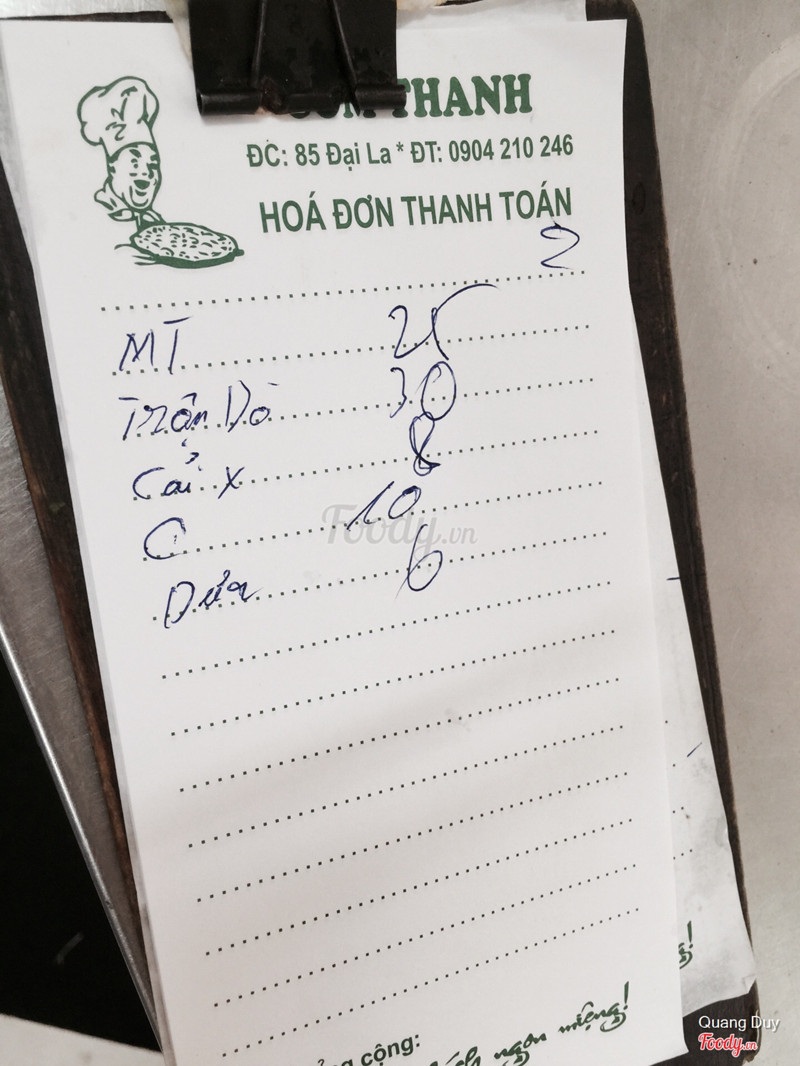 THANH
ĐC: 85 Đại La * ĐT: 0904 210 246
HOÁ ĐƠN THANH TOÁN
2
MT 25
Trộn Dò 30
Cải X 8
C 10
Dưa 6
Foody.vn
cộng:
ngon miệng!
g!
Quang Duy
Foody.vn